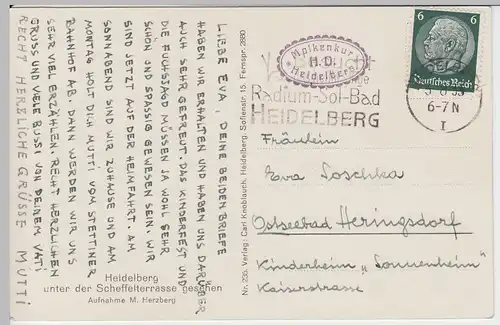 LIEBE EVA, DEINE BEIDEN BRIEFE
HABEN WIR ERHALTEN UND HABEN UNS DARÜBER
AUCH SEHR GEFREUT. DAS KINDERFEST UND
DIE FUCHSJAGD MÜSSEN JA WOHL SEHR
SCHÖN UND SPASSIG GEWESEN SEIN. WIR
SIND JETZT AUF DER HEIMFAHRT. AM
SONNABEND SIND WIR ZUHAUSE UND AM
MONTAG HOLT DICH MUTTI VOM STETTINER
BAHNHOF AB. DANN WERDEN WIR UNS
SEHR VIEL ERZÄHLEN. RECHT HERZLICHEN
GRUSS UND VIELE BUSSI VON DEINEM VATI
RECHT HERZLICHE GRÜSSE MUTTI
Heidelberg
unter der Scheffelterrasse gesehen
Aufnahme M. Herzberg
Nr. 235 Verlag: Carl Knoblauch, Heidelberg, Sofienstr. 15, Fernspr. 2880
Molkenkur
H.D.
Heidelberg
Radium-Sol-Bad
HEIDELBERG
6 6
Deutsches Reich
6-7 N
I
Fräulein
Eva Soschka
Ostseebad Heringsdorf
Kinderheim „Sonnenheim"
Kaiserstrasse